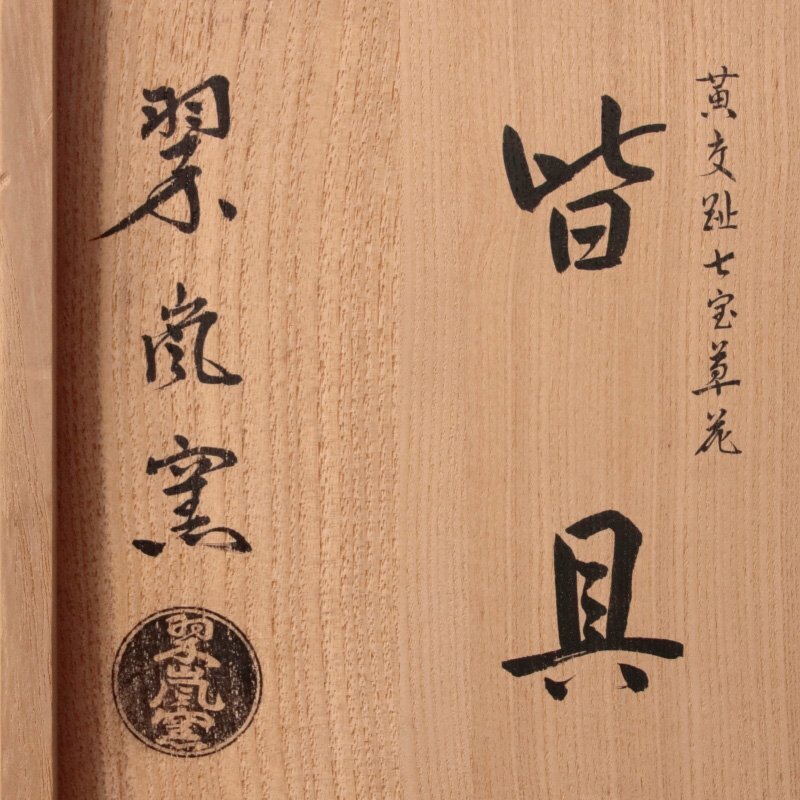 黄交趾七宝草花
皆具
翠嵐窯
翠嵐窯